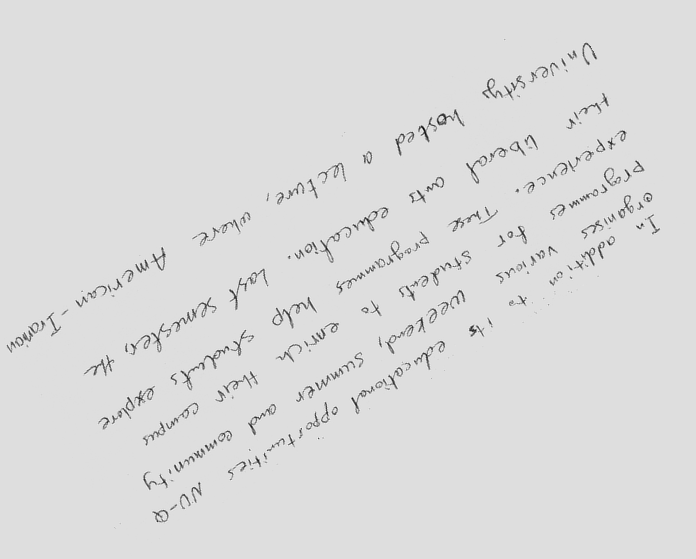 In addition to its educational opportunities NU-Q
organises various weekend, summer and community
programmes for students to enrich their campus
experience. These programmes help students explore
their liberal arts education. Last semester, the
University hosted a lecture, where American-Iranian